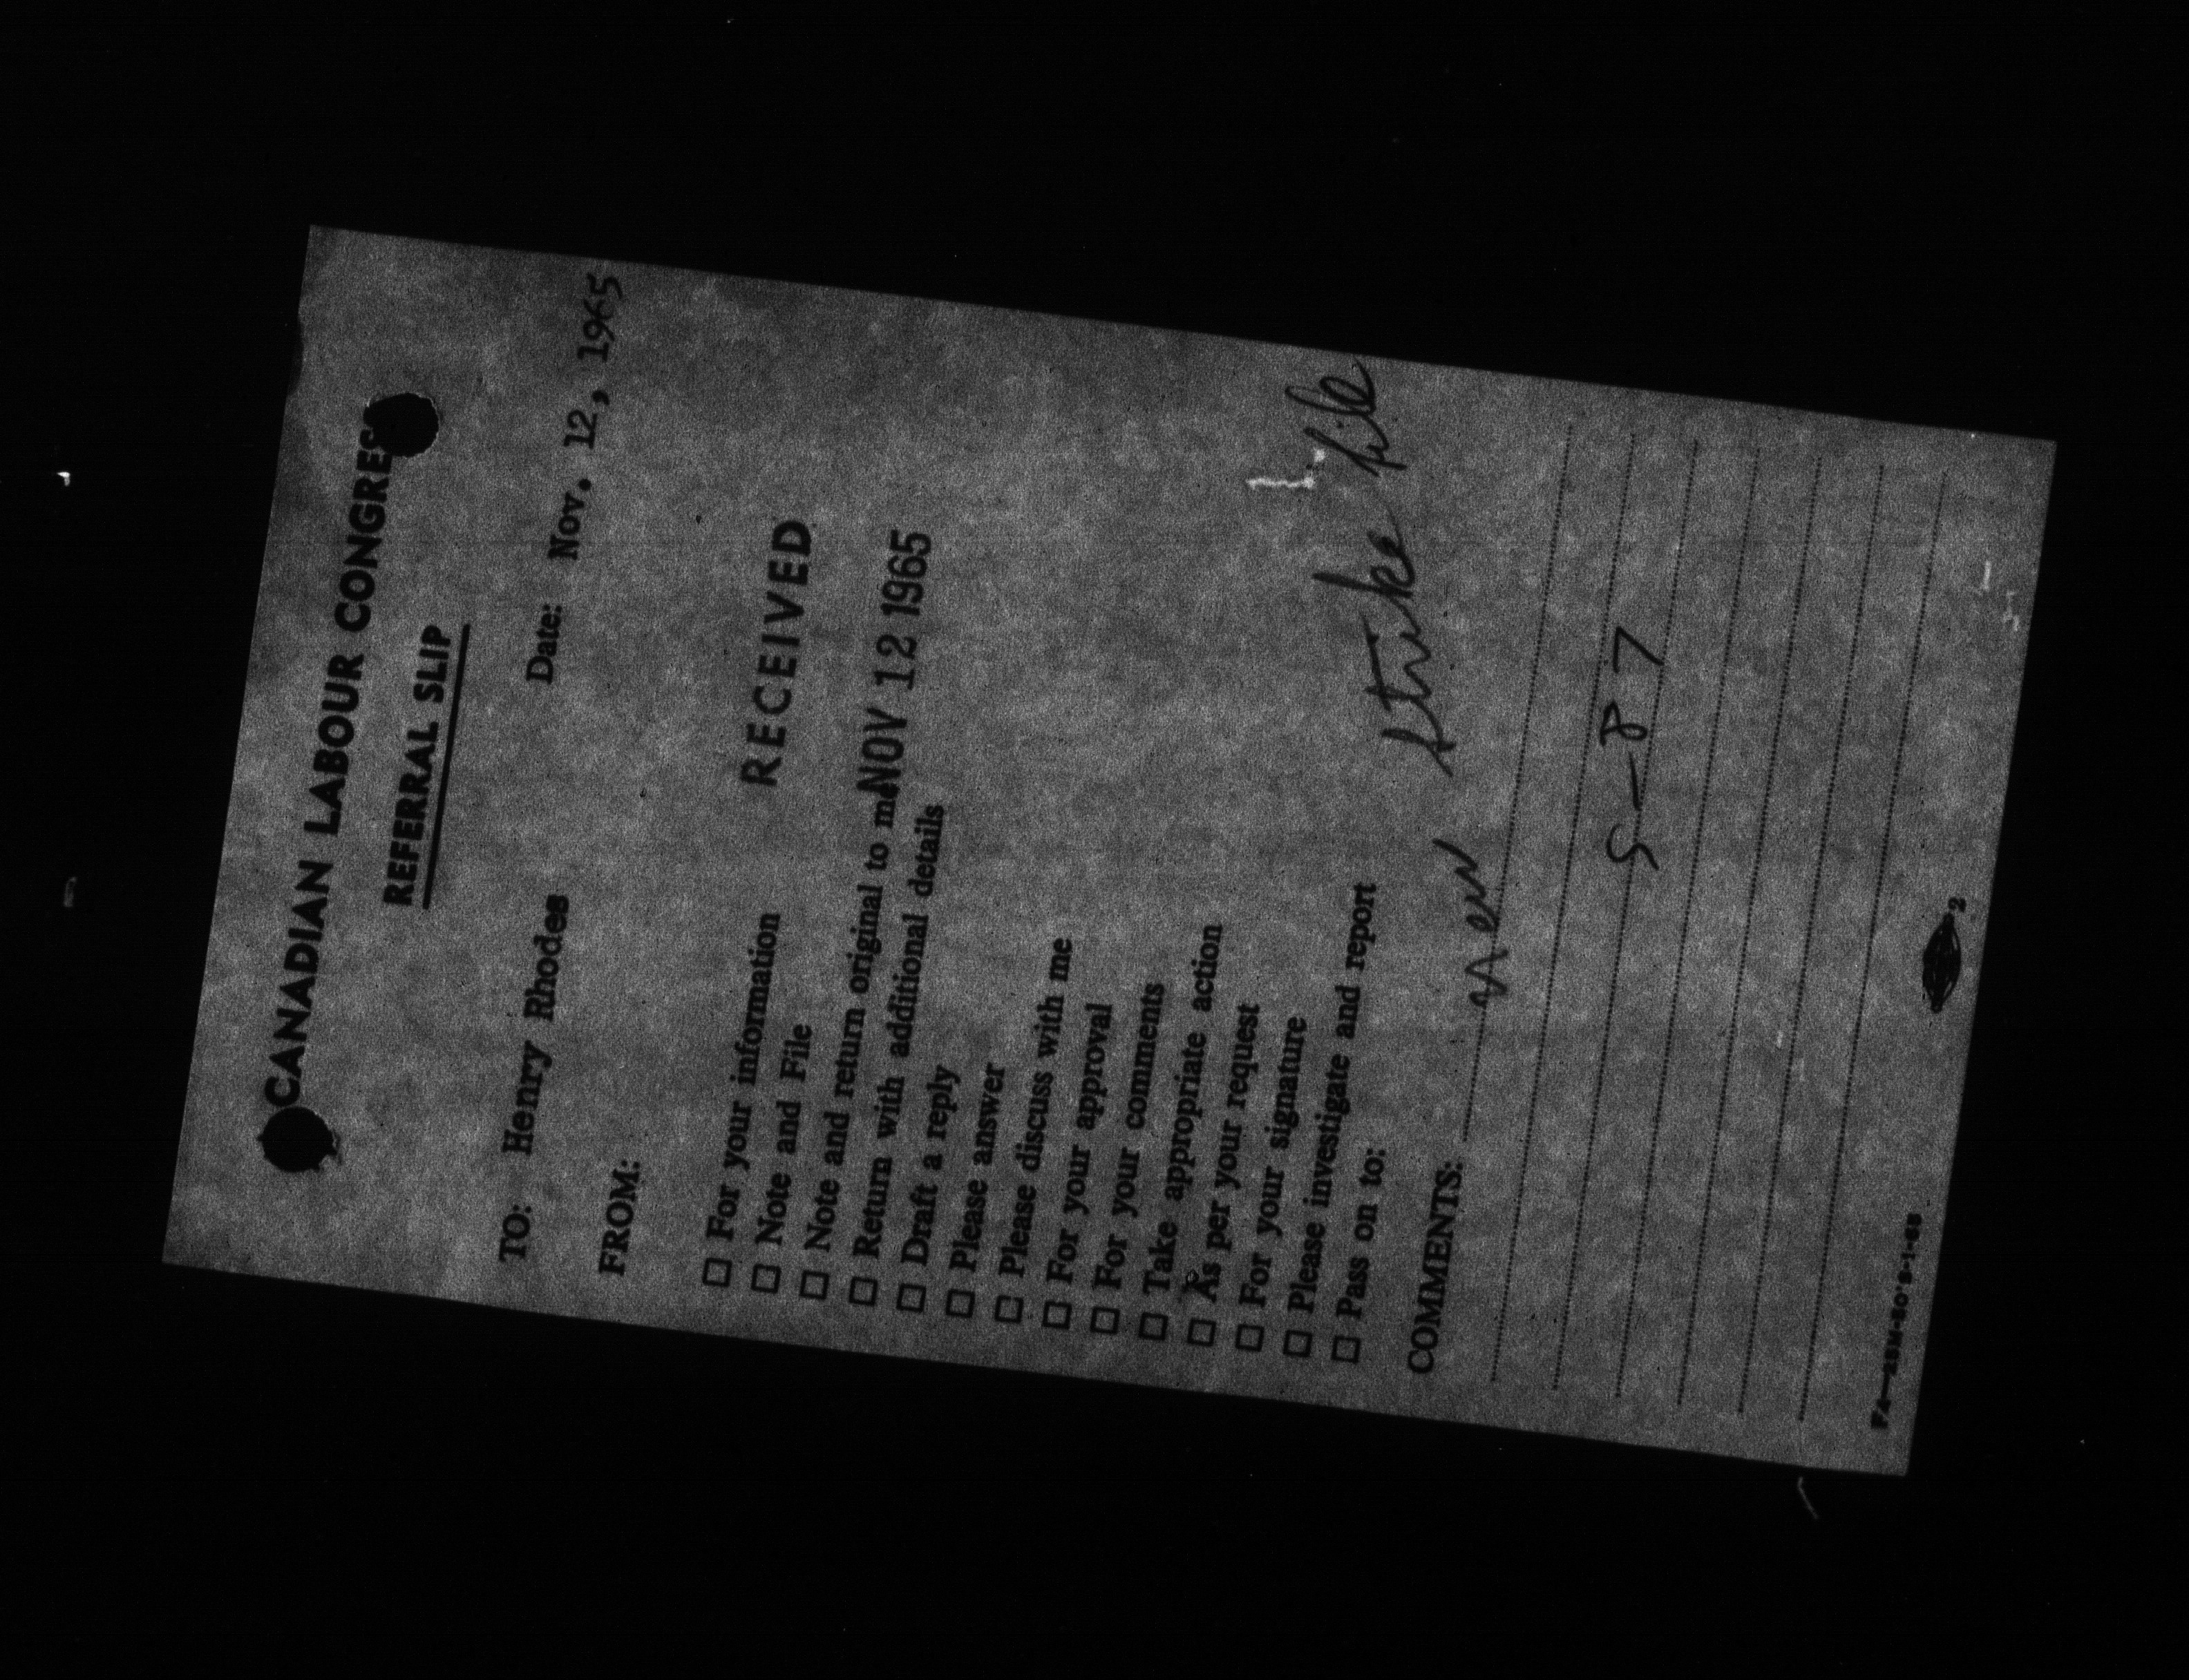 CANADIAN LABOUR CONGRES
REFERRAL SLIP
Date: Nov. 12, 1965
TO: Henry Rhodes
FROM:
RECEIVED
NOV 12 1965
☐ For your information
☐ Note and File
☐ Note and return original to me
☐ Return with additional details
☐ Draft a reply
☐ Please answer
☐ Please discuss with me
☐ For your approval
☐ For your comments
☐ Take appropriate action
☐ As per your request
☐ For your signature
☐ Please investigate and report
☐ Pass on to:
COMMENTS: New Strike file
S-87
2